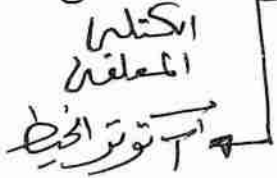 الكتلة
المعلقة
T توتر الخيط